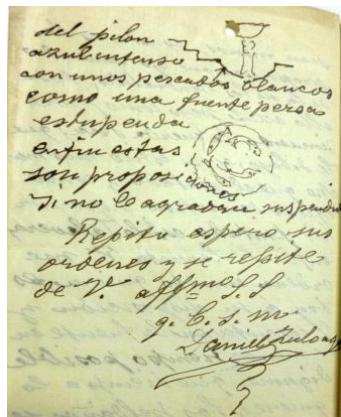 del pilon
azul intenso
con unos pescados blancos
como una fuente persa
estupenda
en fin estas
son proposiciones
si no le agradan suspendo
Repito espero sus
ordenes y se repite
de V. affmo S.S
q. b. s. m
Daniel Zuloaga